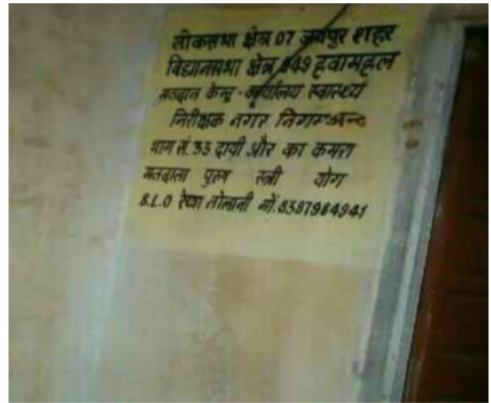 लोकसभा क्षेत्र 07 जयपुर शहर
विधानसभा क्षेत्र 049 हवामहल
मतदान केन्द्र - कार्यालय स्वास्थ्य
निरीक्षक नगर निगम
भाग सं. 33 दायी और का कमरा
मतदाता पुरुष स्त्री योग
B.L.O रेखा तोलानी मों. 8387984941